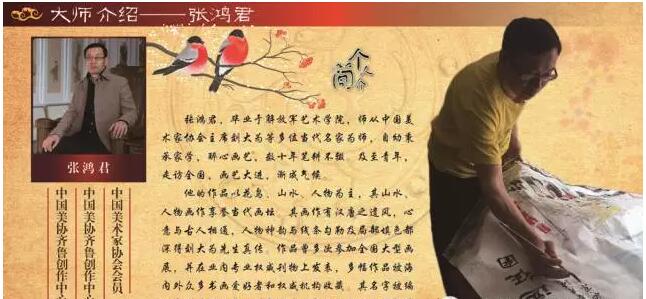 大师介绍——张鸿君
个人简介
张鸿君
中国美术家协会会员
中国美协齐鲁创作中心
中国美协齐鲁创作中心
张鸿君，毕业于解放军艺术学院，师从中国美
术家协会主席刘大为等多位当代名家为师，自幼秉
承家学，醉心画艺，数十年笔耕不辍，及至青年，
走访全国，画艺大进，渐成气候
他的作品以花鸟、山水、人物为主，其山水、
人物画作享誉当代画坛，其画作有汉唐之遗风，心
意与古人相通，人物神韵与线条勾勒及局部填色都
深得刘大为先生真传，作品曾多次参加全国大型画
展，并在业内专业权威刊物上发表，多幅作品被海
内外众多书画爱好者和权威机构收藏，其名字被编